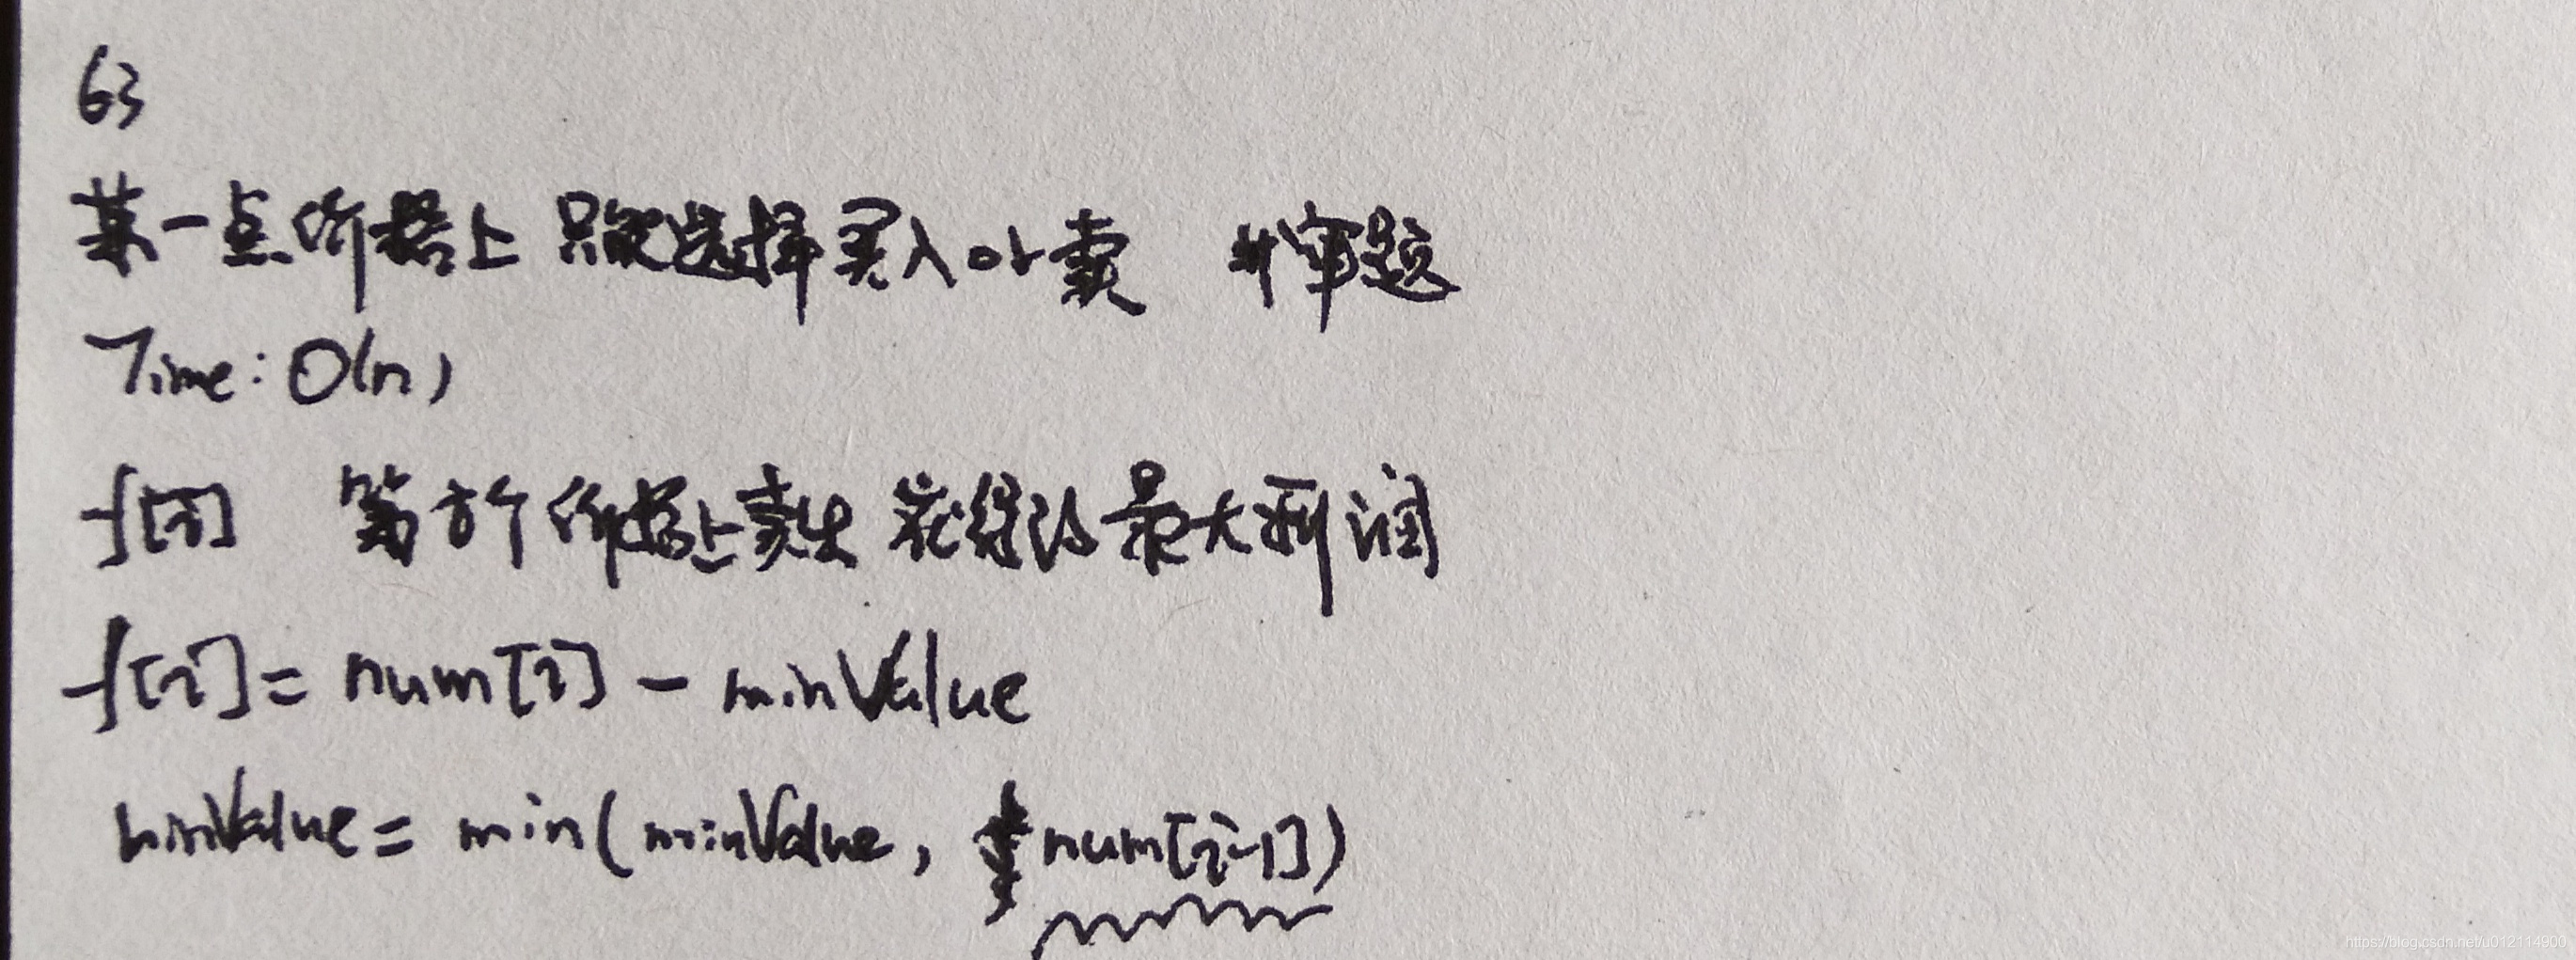 63
某一点价格上 只能选择买入or卖 #审题
Time: O(n)
f[i] 第i个价格上卖出 获得的最大利润
f[i] = num[i] - minValue
minValue = min(minValue, num[i-1])
https://blog.csdn.net/u012114900